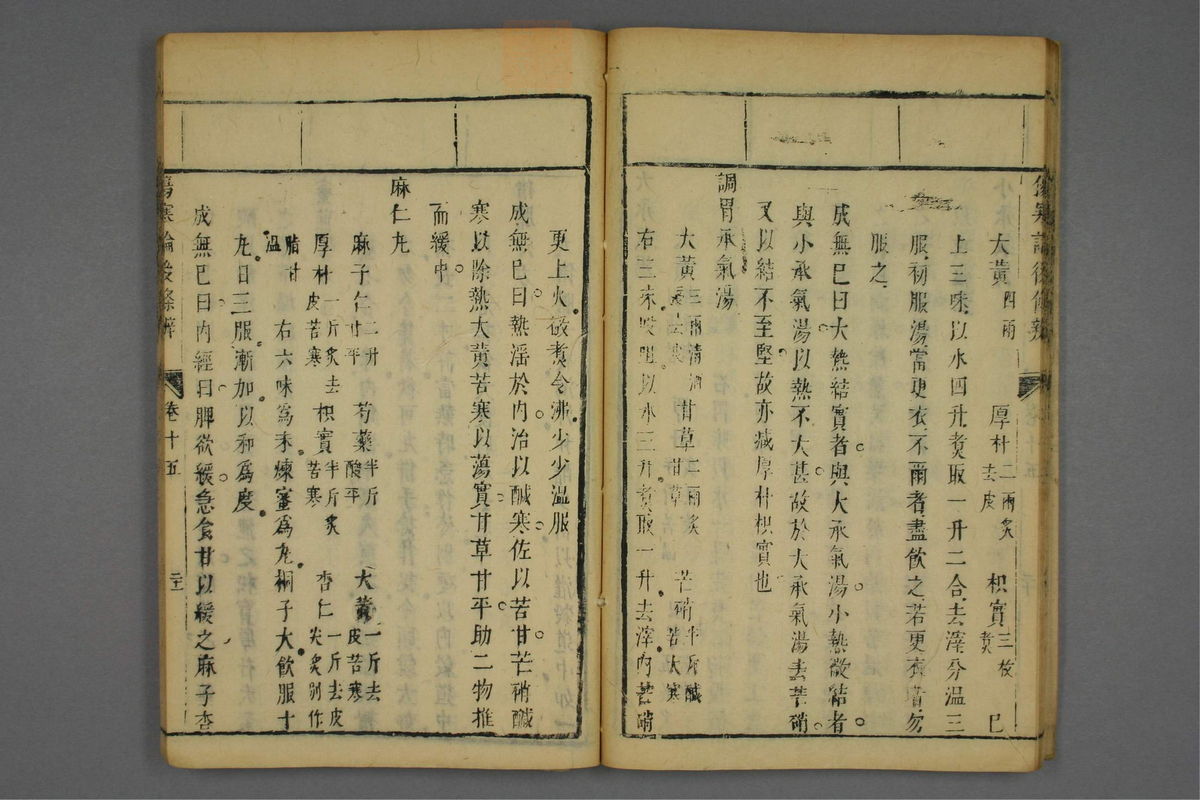 傷寒論後條辨
大黃四兩 厚朴二兩炙去皮 枳實三枚煑 已
上三味以水四升煑取一升二合去滓分溫三
服初服湯當更衣不爾者盡飲之若更衣者勿
服之
成無巳曰大熱結實者與大承氣湯小熱微結者
與小承氣湯以熱不大甚故於大承氣湯去芒硝
又以結不至堅故亦減厚朴枳實也
調胃承氣湯
大黃三兩清酒 甘草二兩炙甘草 芒硝半斤鹹苦大寒
右三味㕮咀以水三升煑取一升去滓內芒硝
更上火微煑令沸少少溫服
成無巳曰熱淫於內治以鹹寒佐以苦甘芒硝鹹
寒以除熱大黃苦寒以蕩實甘草甘平助二物推
而緩中
麻仁丸
麻子仁二升甘平 芍藥半斤酸平 大黃一斤去皮苦寒
厚朴一斤炙去皮苦寒 枳實半斤炙苦寒 杏仁一斤去皮尖炙別作
脂甘溫 右六味爲末煉蜜爲丸桐子大飲服十
丸日三服漸加以和爲度
成無巳曰內經曰脾欲緩急食甘以緩之麻子杏
傷寒論後條辨 卷十五 二十二